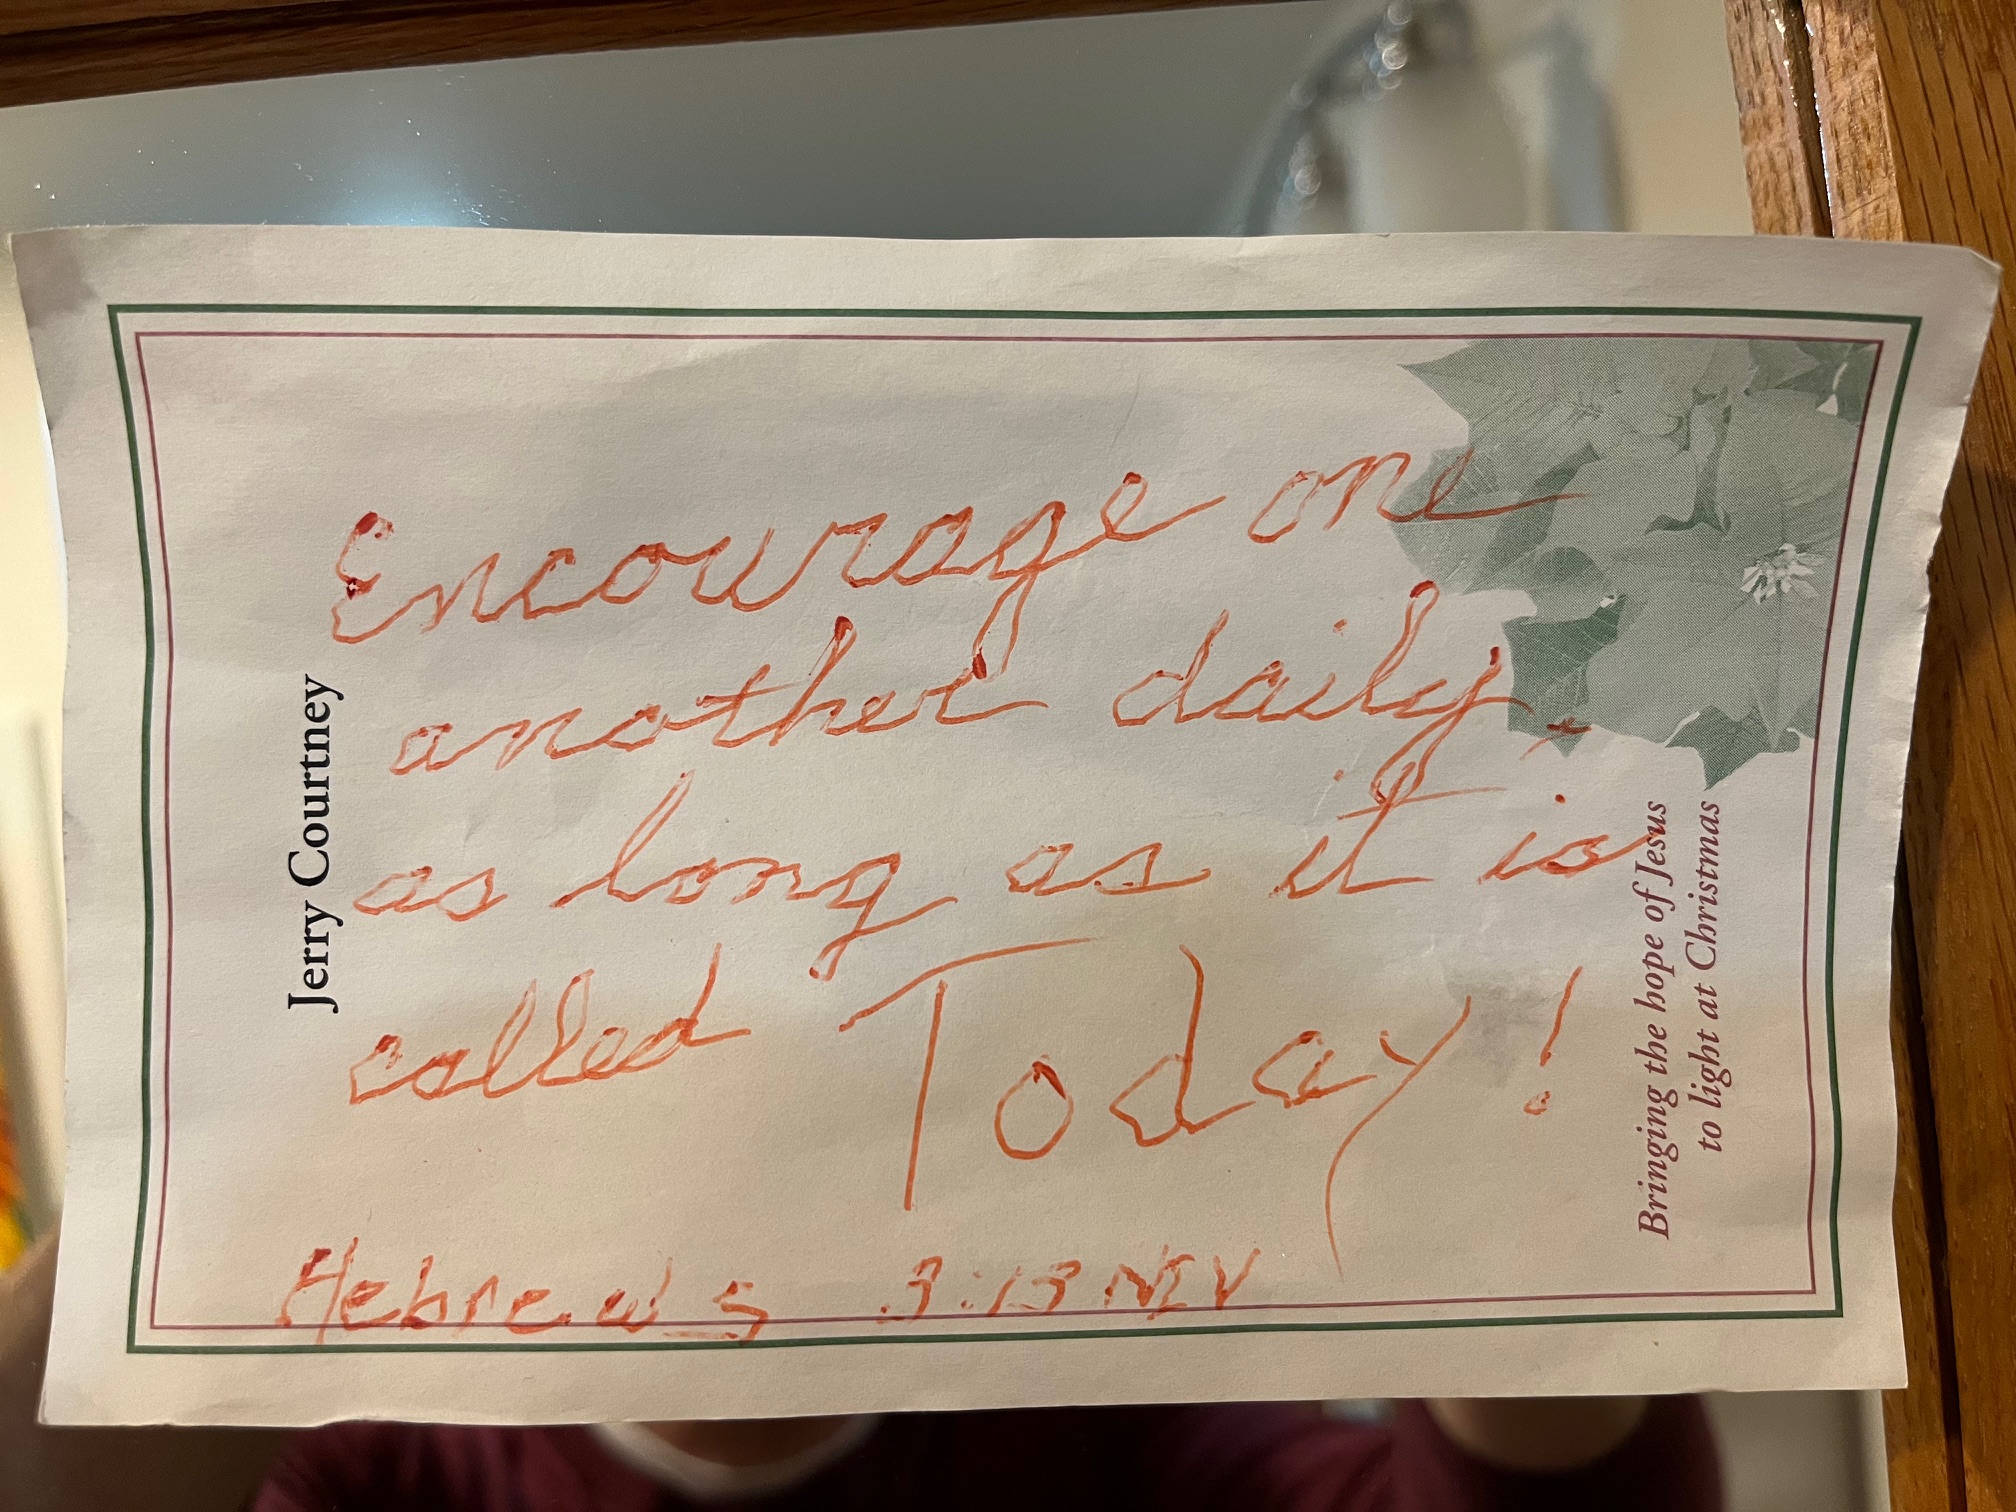 Encourage one
another daily,
as long as it is
called Today!
Hebrews 3:13 NIV
Jerry Courtney
Bringing the hope of Jesus
to light at Christmas